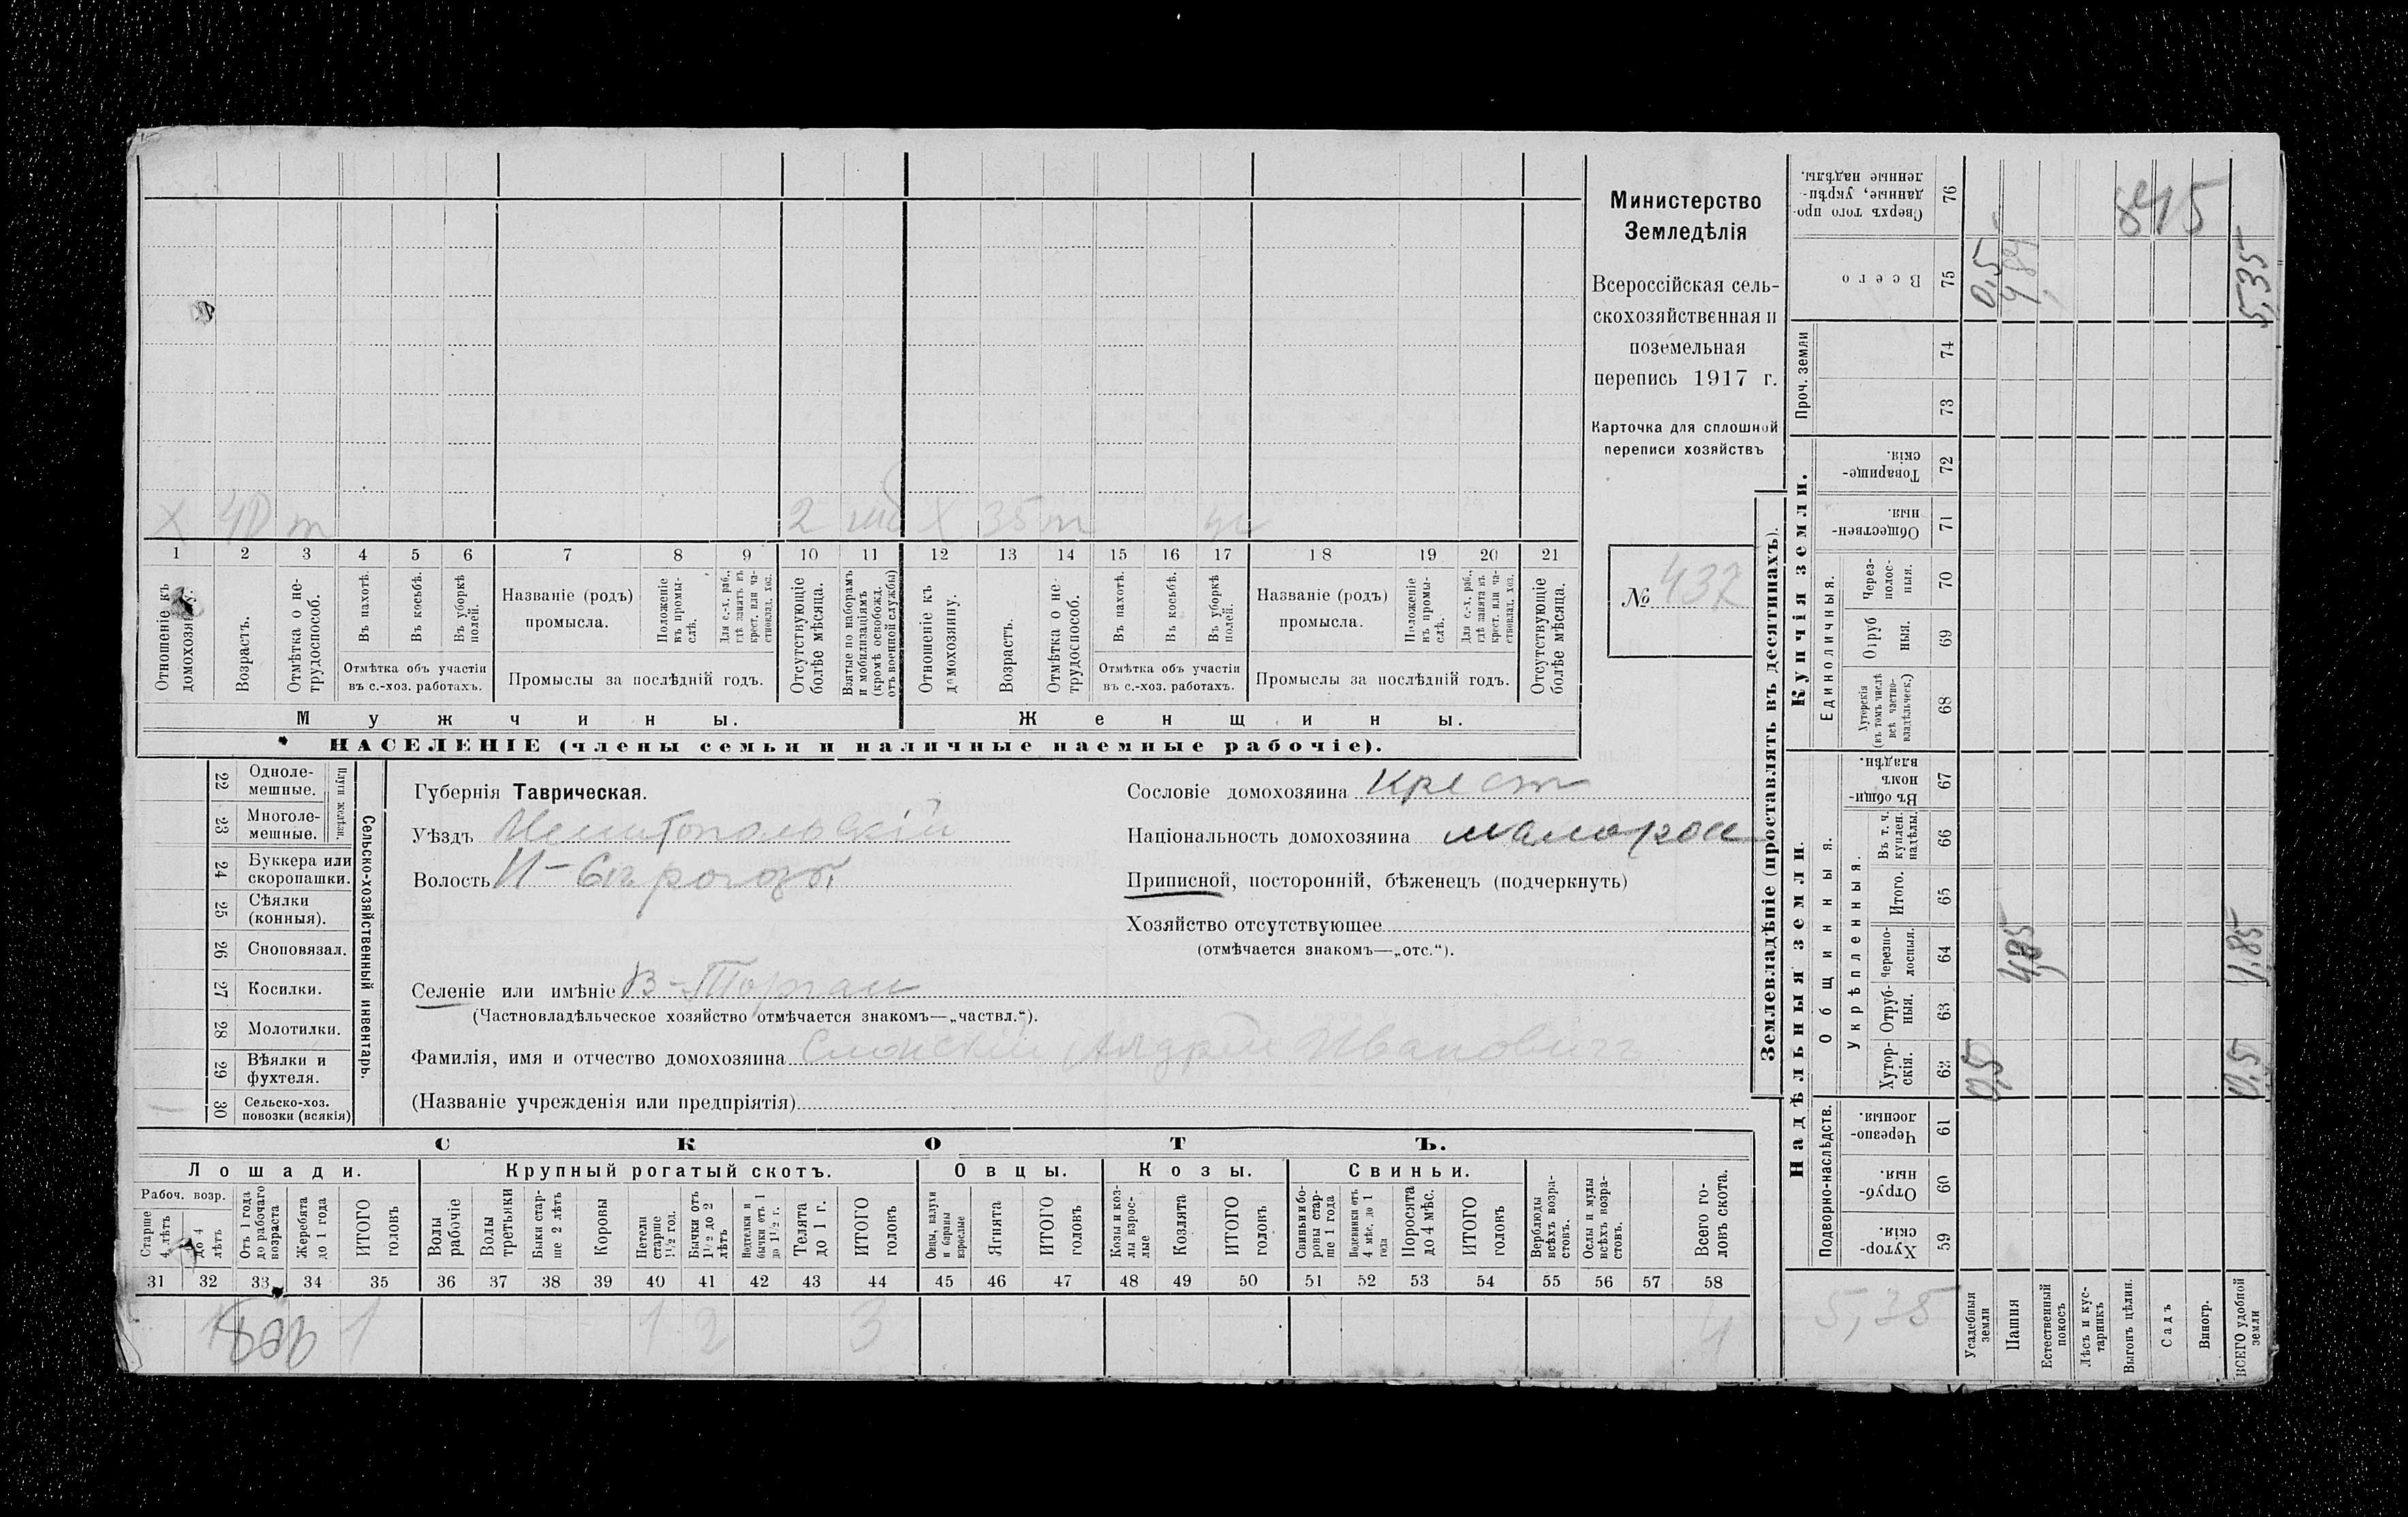 Министерство
Земледѣлія
Всероссійская сель-
скохозяйственная и
поземельная
перепись 1917 г.
Карточка для сплошной
переписи хозяйствъ
№ 437
X 40 т 2 X 35 т
1 2 3 4 5 6 7 8 9 10 11 12 13 14 15 16 17 18 19 20 21
Отношеніе къ домохозяину.
Возрастъ.
Отмѣтка о не-трудоспособ.
Въ пахотѣ.
Въ косьбѣ.
Въ уборкѣ полей.
Отмѣтка объ участіи
въ с.-хоз. работахъ.
Названіе (родъ)
промысла.
Положеніе въ промы-слѣ.
Для с.-х. раб., гдѣ занятъ въ крест. или ча-стновлад. хоз.
Промыслы за послѣдній годъ.
Отсутствующіе болѣе мѣсяца.
Взятые по наборамъ и мобилизаціямъ (кромѣ освобожд. отъ военной службы)
Отношеніе къ домохозяину.
Возрастъ.
Отмѣтка о не-трудоспособ.
Въ пахотѣ.
Въ косьбѣ.
Въ уборкѣ полей.
Отмѣтка объ участіи
въ с.-хоз. работахъ.
Названіе (родъ)
промысла.
Положеніе въ промы-слѣ.
Для с.-х. раб., гдѣ занята въ крест. или ча-стновлад. хоз.
Промыслы за послѣдній годъ.
Отсутствующіе болѣе мѣсяца.
Мужчины.
Женщины.
НАСЕЛЕНІЕ (члены семьи и наличные наемные рабочіе).
Сельско-хозяйственный инвентарь.
Плуги желѣзн.
22 Одноле-мешные.
23 Многоле-мешные.
24 Буккера или скоропашки.
25 Сѣялки (конныя).
26 Сноповязал.
27 Косилки.
28 Молотилки.
29 Вѣялки и фухтеля.
30 Сельско-хоз. повозки (всякія)
Губернія Таврическая.
Уѣздъ Мелитопольскій
Волость Н-Сѣрогозы
Селеніе или имѣніе В-Торгаи
(Частновладѣльческое хозяйство отмѣчается знакомъ—„частвл.“).
Фамилія, имя и отчество домохозяина Андрей Ивановичъ
(Названіе учрежденія или предпріятія)
Сословіе домохозяина крест
Національность домохозяина малорос
Приписной, посторонній, бѣженецъ (подчеркнуть)
Хозяйство отсутствующее
(отмѣчается знакомъ—„отс.“).
СКОТЪ.
Лошади.
Крупный рогатый скотъ.
Овцы.
Козы.
Свиньи.
Рабоч. возр.
Старше 4 лѣтъ
до 4 лѣтъ
Отъ 1 года до рабочаго возраста
Жеребята до 1 года
ИТОГО головъ
Волы рабочіе
Волы третьяки
Быки стар-ше 2 лѣтъ
Коровы
Нетели старше 1½ год.
Бычки отъ 1½ до 2 лѣтъ
Подтелки и бычки отъ 1 до 1½ г.
Телята до 1 г.
ИТОГО головъ
Овцы, валухи и бараны взрослые
Ягнята
ИТОГО головъ
Козы и коз-лы взрос-лые
Козлята
ИТОГО головъ
Свиньи и бо-ровы стар-ше 1 года
Подсвинки отъ 4 мѣс. до 1 года
Поросята до 4 мѣс.
ИТОГО головъ
Верблюды всѣхъ возра-стовъ.
Ослы и мулы всѣхъ возра-стовъ.
Всего го-ловъ скота.
31 32 33 34 35 36 37 38 39 40 41 42 43 44 45 46 47 48 49 50 51 52 53 54 55 56 57 58
1 1 2 3 4
Землевладѣніе (проставлять въ десятинахъ).
Надѣльныя земли.
Купчія земли.
Проч. земли
Подворно-наслѣдств.
Общинныя.
Укрѣпленныя.
Единоличныя.
Сверхъ того про-данные, укрѣп-ленные надѣлы. 76
Всего 75
74
73
Товарище-скія. 72
Обществен-ныя. 71
Через-полос-ныя. 70
Отруб-ныя. 69
Хуторскія (въ томъ числѣ всѣ частно-владѣльческ.) 68
Въ общи-номъ владѣн. 67
Въ т. ч. куплен. надѣлы. 66
Итого. 65
Черезпо-лосныя. 64
Отруб-ныя. 63
Хутор-скія. 62
Черезпо-лосныя. 61
Отруб-ныя. 60
Хутор-скія. 59
Усадебныя земли
Пашня
Естественный покосъ
Лѣсъ и кус-тарникъ
Выгонъ цѣлин.
Садъ
Виногр.
ВСЕГО удобной земли
0,5
5,35
4,85
4,85
0,5
0,5
5,35